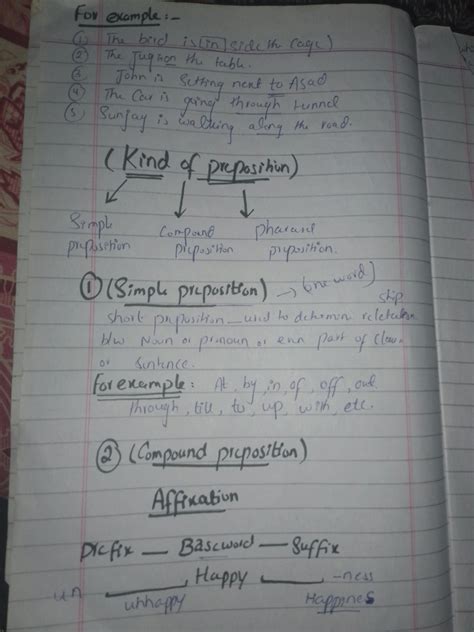 For example:-
① The bird is in side the Cage)
② The Jug on the table.
③ John is Setting next to Asad
④ The Car is going through tunnel
⑤ Sunjay is walking along the road.
(Kind of preposition)
Simple preposition
Compound preposition
pharasal preposition.
① (Simple preposition) → (one word)
short preposition used to determin reletationship
b/w Noun or pronoun or even part of Claus
or Sentence.
For example: At, by, in, of, off, out
through, till, to, up, with, etc.
② (Compound preposition)
Affixation
Prefix — Baseword — Suffix
un Happy -ness
unhappy Happines